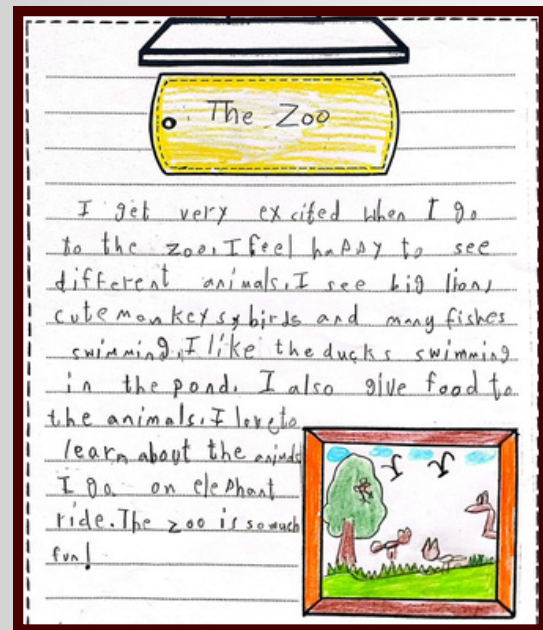 The Zoo
I get very excited when I go
to the zoo. I feel happy to see
different animals. I see big lion,
cute monkeys, birds and many fishes
swimming. I like the ducks swimming
in the pond. I also give food to
the animals. I love to
learn about the animals
I go on elephant
ride. The zoo is so much
fun!